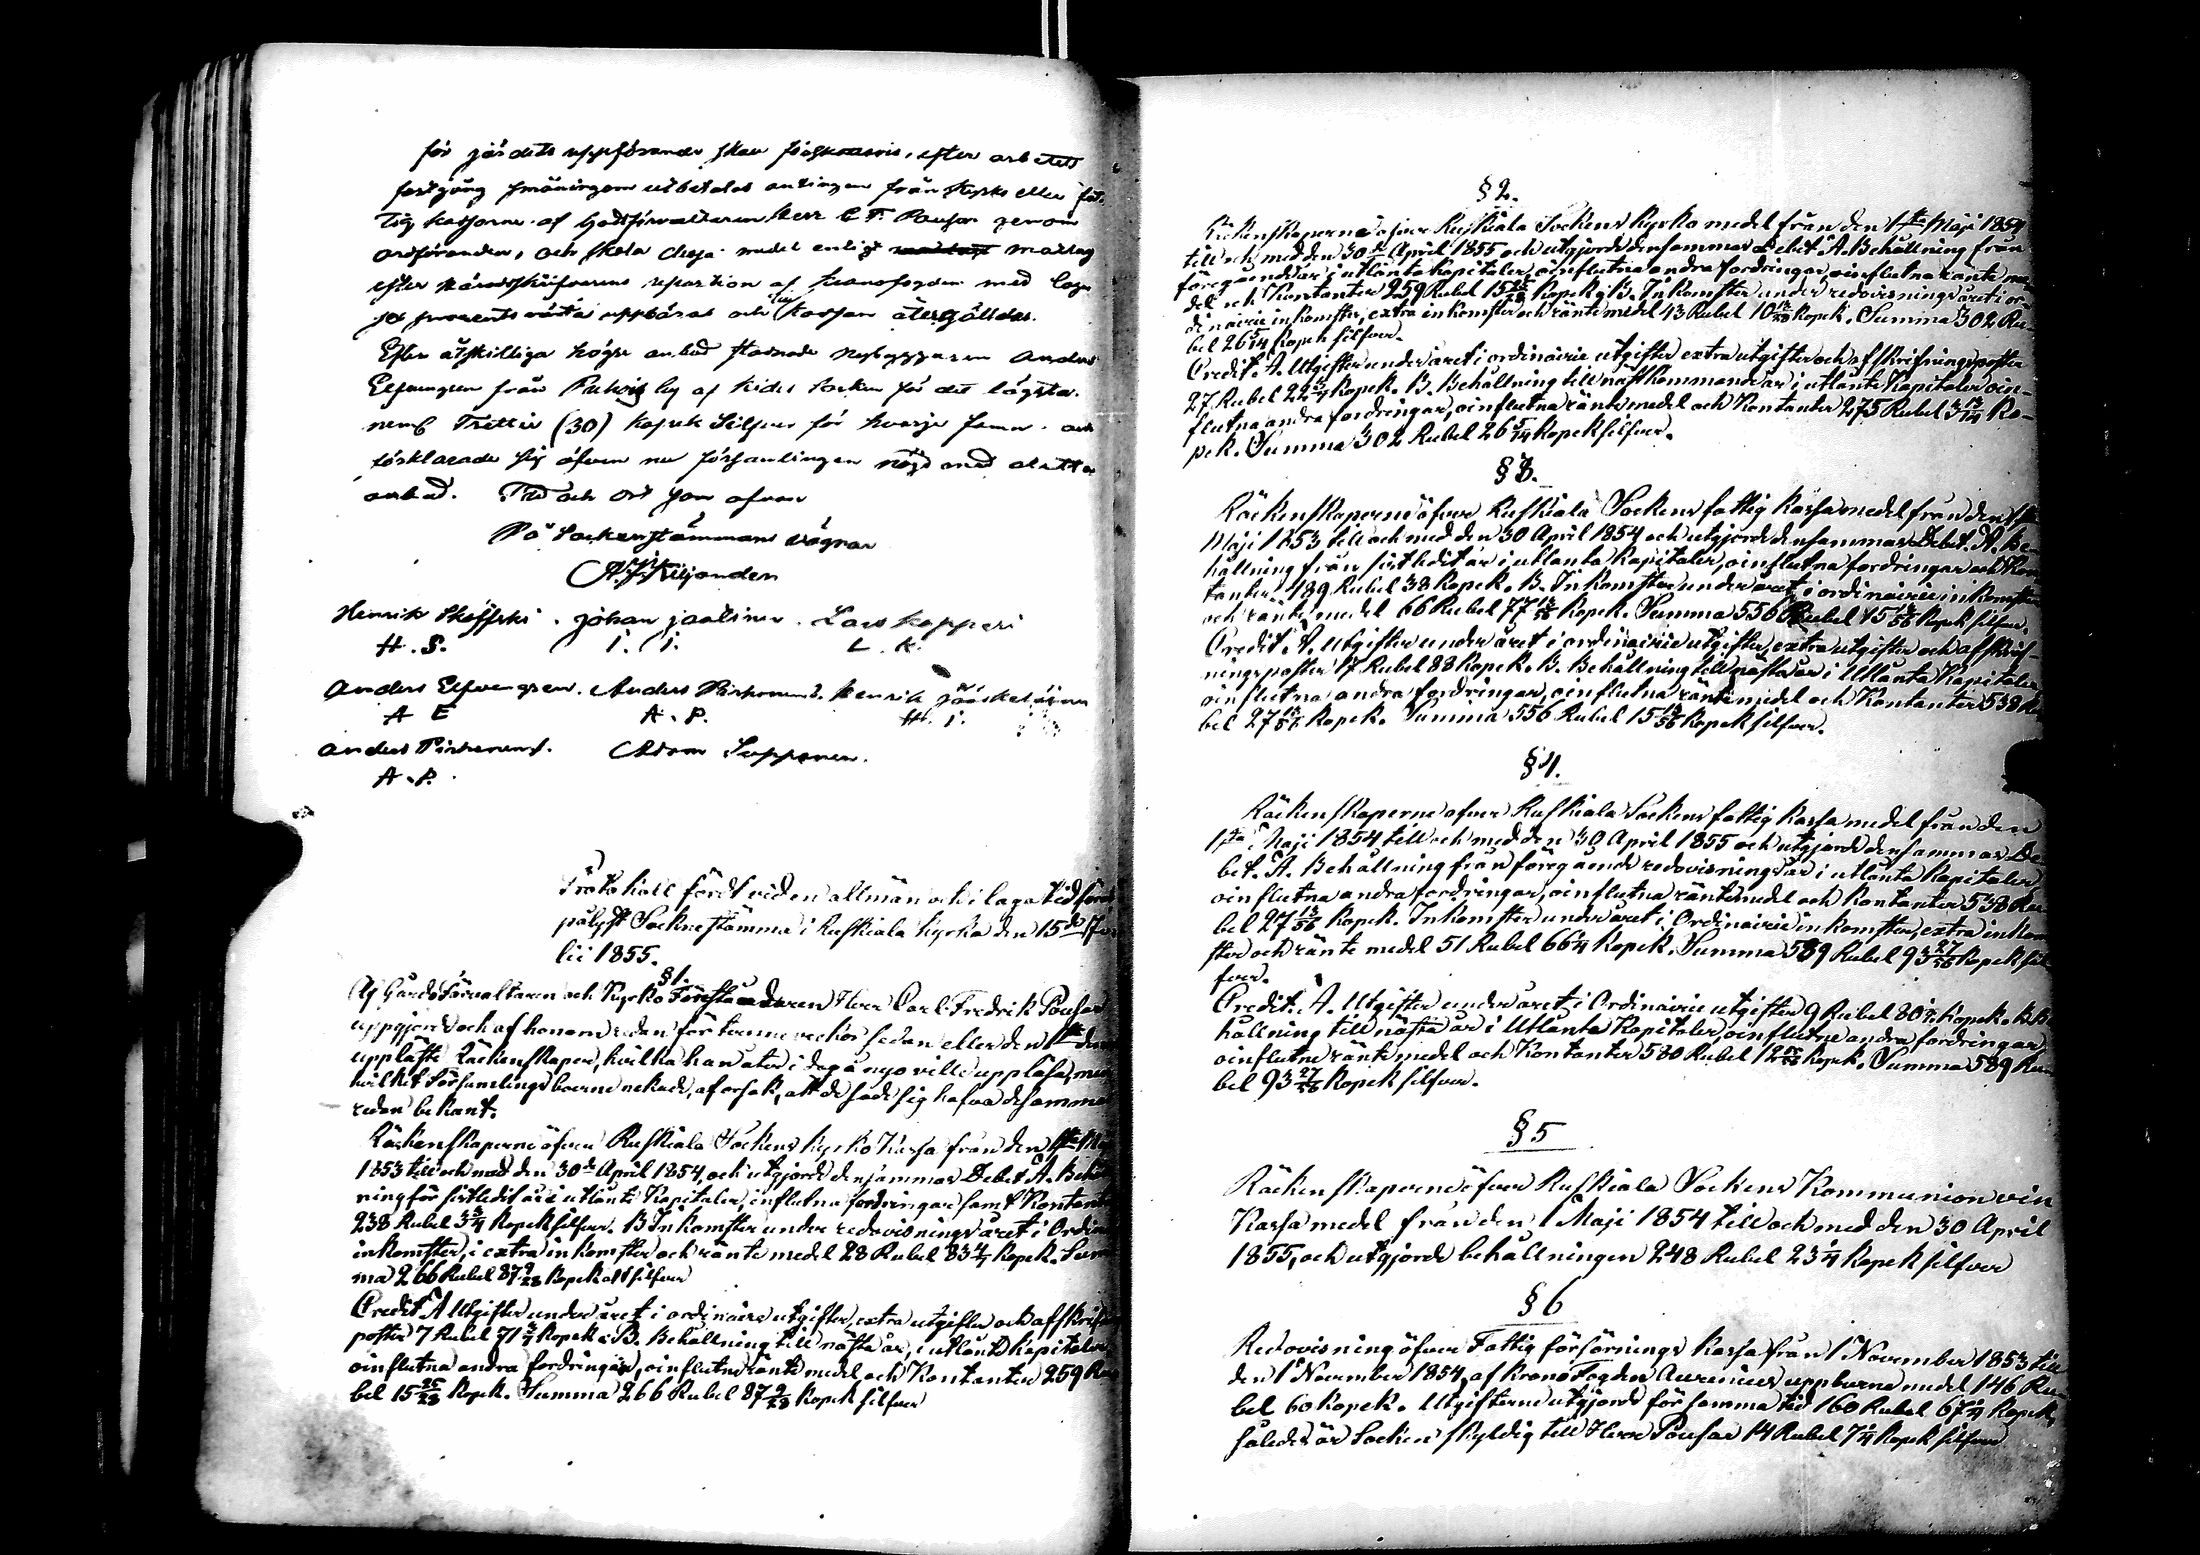 för gärdets uppförande skea förskottsvis, efter arbetets
fortgång småningom utbetalas antingen från Kyrko eller fat-
tig kassorne af Godsförvaltaren Herr C. F. Pousar genom
ordföranden, och skola dessa medel enligt mantal
efter Häradsskrifvarens repartion af Kronofogden med laga
sex procents ränta uppbäras och till Kassan återgäldas.
Efter åtskilliga högre anbud stadnade nybyggaren Anders
Elfvengren från by af Kides Socken för det lägsta.
neml Trettie (30) Kopek Silfver för hvarje famn. och
förklarade sig äfven nu församlingen nögd med detta
anbud. Tid och Ort som ofvan
På Sockenstämmans vägnar
A. J. Kiljander
Henrik Sköffski. Johan Jaatinen. Lars Kopperi
H. S. I. I. L. K.
Anders Elfvengren. Anders Pirhonen. Henrik Jääskeläinen
A E A. P. H. I.
Anders Pirhonen. Adam Sopponen.
A. P.
Protokoll fördt vid en allmän och i laga tid före
pålyst Socknestämma i Ruskiala Kyrka den 15de Ju
lii 1855.
§ 1.
Af GårdsFörvaltaren och KyrkoFöreståndaren Herr Carl Fredrik Pousar
uppgjorde och af honom redan för tvenne veckor sedan eller den 1ste dennes
uppläste Räckenskaper, hvilka han åter i dag å nyo ville uppläsa, men
hvilket Församlingsboerne nekade, af orsak, att de sade sig hafva desamma
redan bekant.
Räckenskaperne öfver Ruskiala Sockens Kyrko Kassa från den 1sta Maj
1853 till och med den 30de April 1854, och utgjorde densammas Debet A. Behåll
ning för sistledit år i utlånte Kapitaler, influtna fordringar samt Kontante
238 Rubel 3 3/4 Kopek silfver. B Inkomster under redovisnings året i Ordin
inkomster, i extra inkomster och ränte medel 28 Rubel 83 4/7 Kopek. Sum
ma 266 Rubel 87 9/28 Kopek allt silfver
Credit A Utgifter under året i ordinaire utgifter, extra utgifter och affskrifnings
poster 7 Rubel 71 3/7 Kopek. B. Behållning till nästa år, i utlånte Kapitaler
oinflutna andra fordringar, oinflutne ränte medel och Kontanter 259 Ru
bel 15 25/28 Kopek. Summa 266 Rubel 87 9/28 Kopek silfver
§ 2.
Räkenskaperne öfver Ruskiala Sockens Kyrko medel från den 1sta Maji 1854
till och med den 30de April 1855 och utgjorde densammas Debet A. Behållning från
föregående år i utlånta Kapitaler, oinflutna andra fordringar, oinflutna ränte me
del och Kontanter 259 Rubel 15 25/28 Kopek, B. Inkomster under redovisnings året i or-
dinairie inkomster, extra inkomster och ränte medel 43 Rubel 10 13/28 Kopek. Summa 302 Ru-
bel 26 5/14 Kopek silfver.
Credit. A. Utgifter under året i ordinairie utgifter extra utgifter och afskrifningsposter
27 Rubel 22 3/7 Kopek. B. Behållning till nästkommande år i utlånte Kapitaler oin-
flutna andra fordringar, oinflutna ränte medel och Kontanter 275 Rubel 3 13/14 Ko-
pek. Summa 302 Rubel 26 5/14 Kopek silfver.
§ 3.
Räckenskaperne öfver Ruskiala Sockens fattig Kassa medel från den 1sta
Maji 1853 till och med den 30 April 1854 och utgjorde densammas Debet. A. Be-
hållning från sistledit år i utlånta Kapitaler, oinflutna fordringar och Kon
tanter 489 Rubel 38 Kopek. B. Inkomster under året i ordinairie inkomster
och ränte medel 66 Rubel 77 13/56 Kopek. Summa 556 Rubel 15 13/56 Kopek silfver.
Credit. A. Utgifter under året i ordinairie utgifter, extra utgifter och afskrif-
ningsposter 17 Rubel 88 Kopek. B. Behållning till nästa år i Utlånta Kapitaler
oinflutna andra fordringar, oinflutna räntemedel och Kontanter 538 Ru
bel 27 13/56 Kopek. Summa 556 Rubel 15 13/56 Kopek silfver.
§ 4.
Räckenskaperne ofver Ruskiala Sockens fattig Kassa medel från den
1sta Maji 1854 till och med den 30 April 1855 och utgjorde densammas De-
bet. A. Behållning från föregående redovisningsår i utlånta Kapitaler
oinflutna andra fordringar, oinflutna räntemedel och Kontanter 538 Ru
bel 27 13/56 Kopek. Inkomster under året i Ordinairie inkomster, extra inkom
ster och ränte medel 51 Rubel 66 1/4 Kopek. Summa 589 Rubel 93 27/56 Kopek sil
fver.
Credit. A. Utgifter under året i Ordinairie utgifter 9 Rubel 80 Kopek. B. Be
hållning till nästa år i Utlånta Kapitaler, oinflutne andra fordringar,
oinflutne ränte medel och Kontanter 580 Rubel 12 Kopek. Summa 589 Ru
bel 93 27/56 Kopek silfver.
§ 5
Räckenskaperne öfver Ruskiala Sockens Kommunion vin
Kassa medel från den 1 Maji 1854 till och med den 30 April
1855, och utgjorde behållningen 248 Rubel 23 1/4 Kopek silfver
§ 6
Redovisning öfver Fattig försörjnings Kassa från 1 November 1853 till
den 1 November 1854, af KronoFogden Aurenius uppburne medel 146 Ru-
bel 60 Kopek. Utgifterne utgjorde för samma tid 160 Rubel 67 1/4 Kopek,
således är Socken skyldig till Herr Pousar 14 Rubel 7 1/4 Kopek silfver